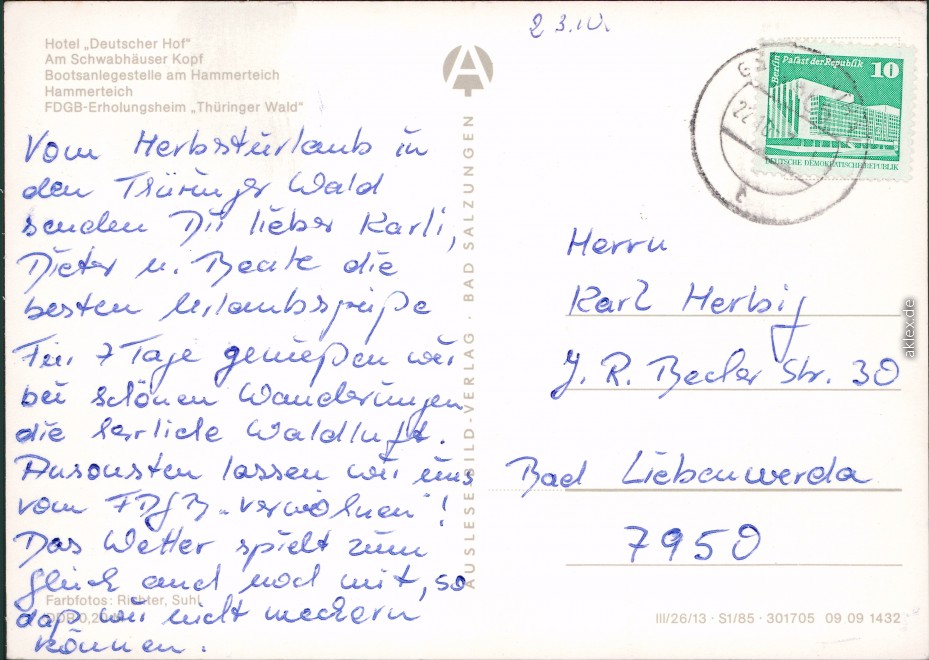 23.10.
Hotel „Deutscher Hof"
Am Schwabhäuser Kopf
Bootsanlegestelle am Hammerteich
Hammerteich
FDGB-Erholungsheim „Thüringer Wald"
Vom Herbsturlaub in
den Thüringer Wald
senden Dir lieber Karli,
Dieter u. Beate die
besten Urlaubsgrüße
Für 7 Tage genießen wir
bei schönen Wanderungen
die herrliche Waldluft.
Ansonsten lassen wir uns
vom FDGB „verwöhnen"!
Das Wetter spielt zum
Glück auch noch mit, so
daß wir nicht meckern
können.
Farbfotos: Richter, Suhl
AUSLESEBILD-VERLAG · BAD SALZUNGEN
Berlin Palast der Republik 10
DEUTSCHE DEMOKRATISCHE REPUBLIK
Herrn
Karl Herbig
J. R. Becher Str. 30
Bad Liebenwerda
7950
III/26/13 · S1/85 · 301705 09 09 1432
aklex.de